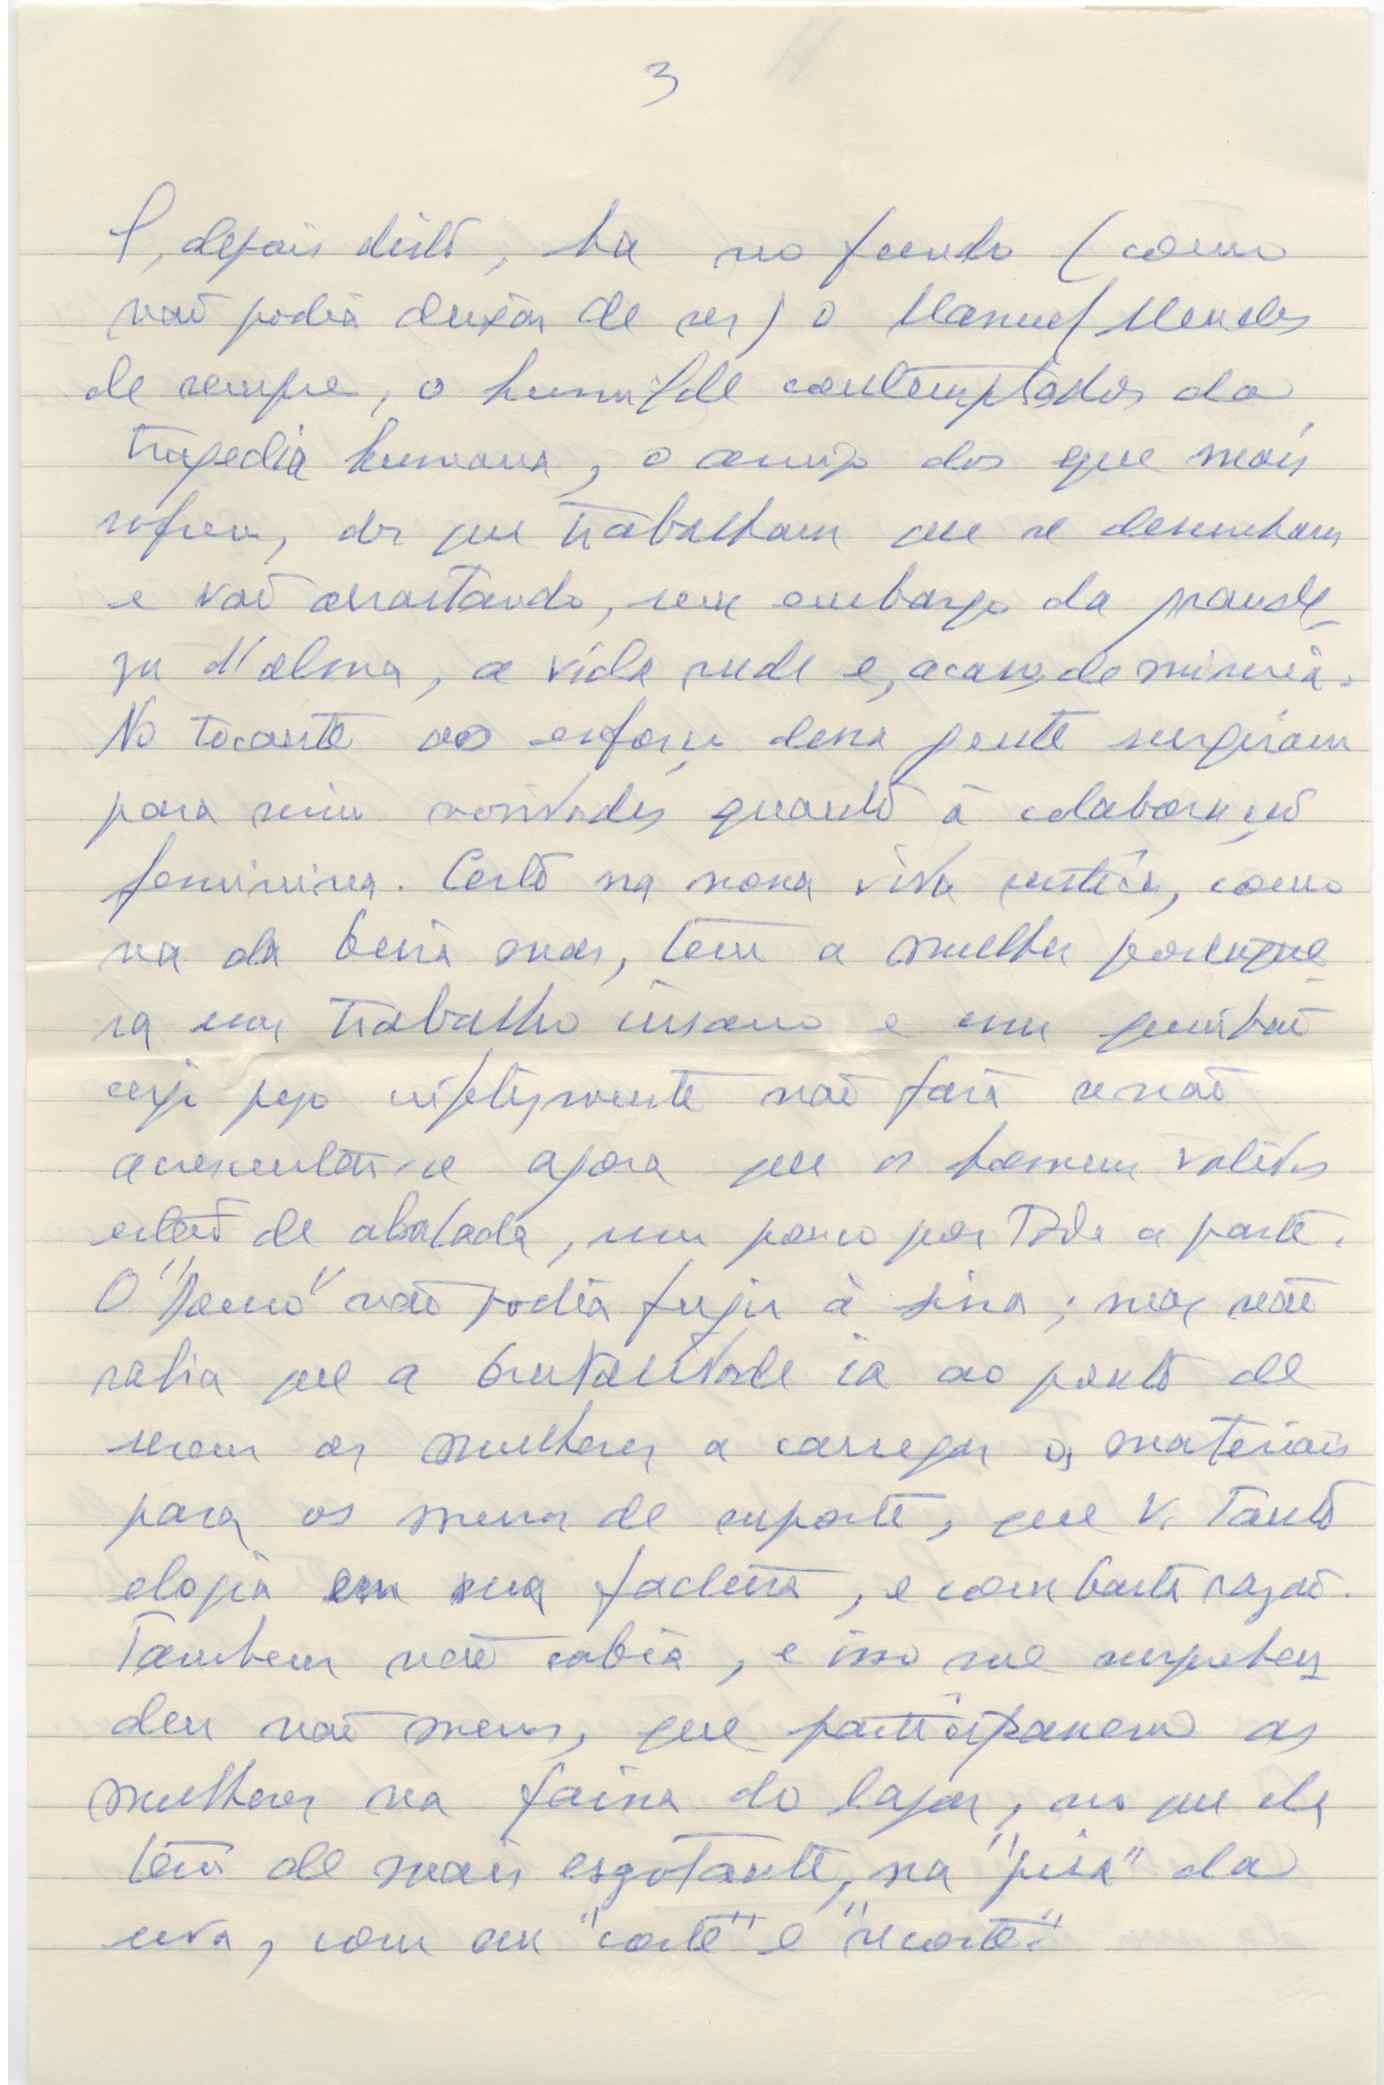 3
E, depois disto, ha no fundo (como
não podia deixar de ser) o Manuel Mendes
de sempre, o humilde contemplador da
tragedia humana, o amigo dos que mais
sofrem, dos que trabalham que se desunham
e vão arrastando, sem embargo da grande-
za d'alma, a vida rude e, acaso, de miseria.
No tocante ao esforço dessa gente surgiram
para mim novidades quanto à colaboração
feminina. Certo na nossa vida rustica, como
na da beira mar, tem a mulher portugue-
sa um trabalho insano e um quinhão
cujo peso infelizmente não fará senão
acrescentar-se agora que os homens validos
estão de abalada, um pouco por toda a parte.
O "Douro" não podia fugir à sina; mas não
sabia que a brutalidade ia ao ponto de
serem as mulheres a carregar os materiais
para os muros de suporte, que V. tanto
elogia em sua factura, e com basta razão.
Tambem não sabia, e isso me surpreen-
deu não menos, que participassem as
mulheres na faina do lagar, no que ela
tem de mais esgotante, na "pisa" da
uva, com seu "corte" e "recorte".